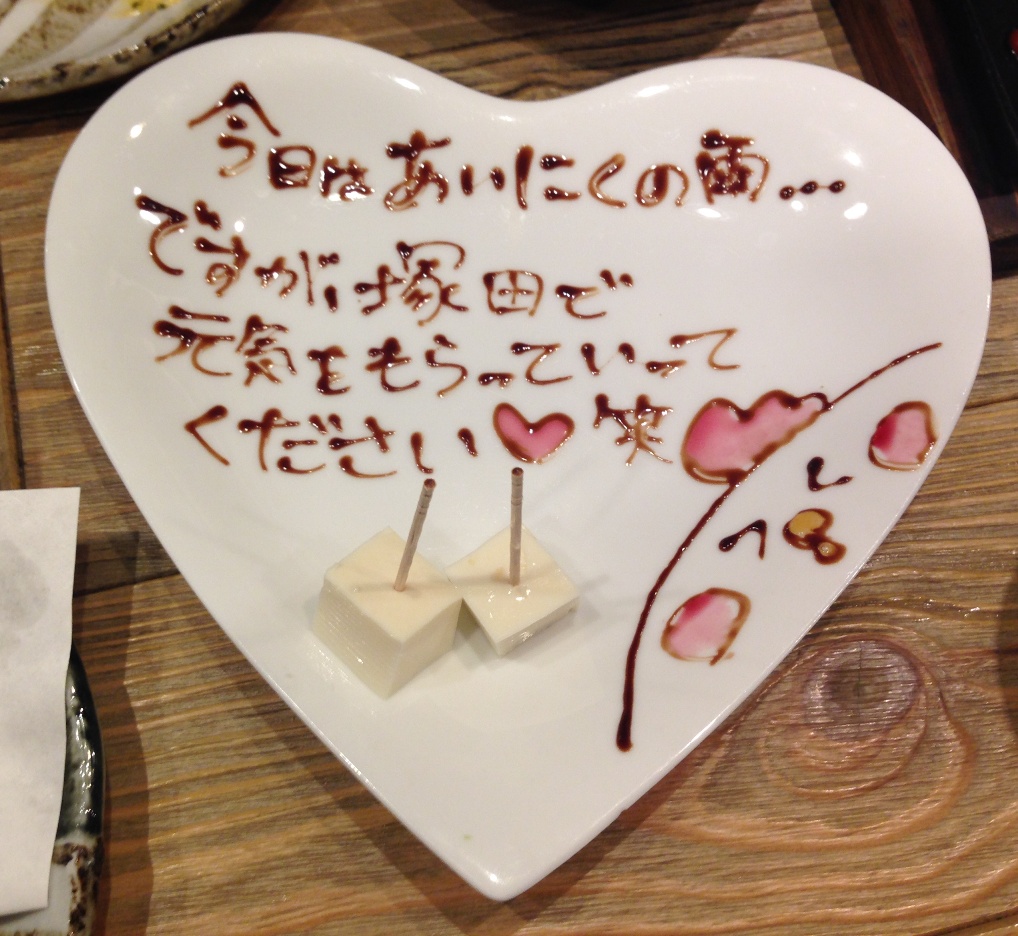 今日はあいにくの雨...
ですが塚田で
元気をもらっていって
ください♡笑